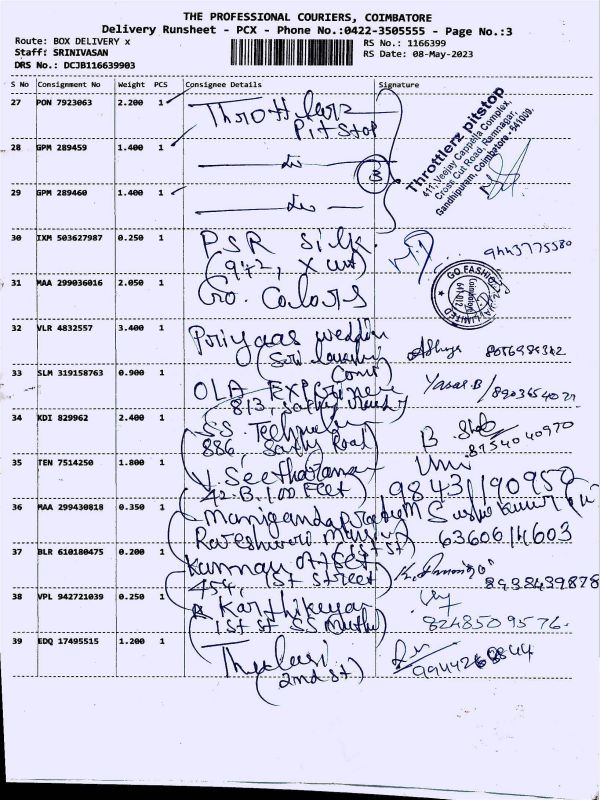 THE PROFESSIONAL COURIERS, COIMBATORE
Delivery Runsheet - PCX - Phone No.:0422-3505555 - Page No.:3
Route: BOX DELIVERY x
RS No.: 1166399
Staff: SRINIVASAN
RS Date: 08-May-2023
DRS No.: DCJB116639903
S No Consignment No Weight PCS Consignee Details Signature
27 PON 7923063 2.200 1 Throttlerz
Pitstop
Throttlerz pitstop
411, Veejay Cappella Complex,
Cross Cut Road, Ramnagar,
Gandhipuram, Coimbatore - 641009.
28 GPM 289459 1.400 1 — do —
3
29 GPM 289460 1.400 1 — do —
30 IXM 503627987 0.250 1 PSR Silk
(942, X cut)
9443775580
31 MAA 299036016 2.050 1 Go. Colors
GO FASHION
LIMITED
32 VLR 4832557 3.400 1 Priyaas wedding
8056984342
33 SLM 319158763 0.900 1 OLA Experience
813, Sathy
Yasar B / 89036540
34 KDI 829962 2.400 1 SS
886, Sathy Road
B
8754040970
35 TEN 7514250 1.800 1 V. Seetharama
42. B. 100 Feet
9843190950
36 MAA 299430818 0.350 1 Maniganda
6360614603
37 BLR 610180475 0.200 1 Kannan offset
454, 1st Street
8938439878
38 VPL 942721039 0.250 1 Karthikeyan
(1st st. SS
8248509576
39 EDQ 17495515 1.200 1 Thulasi
(2nd st)